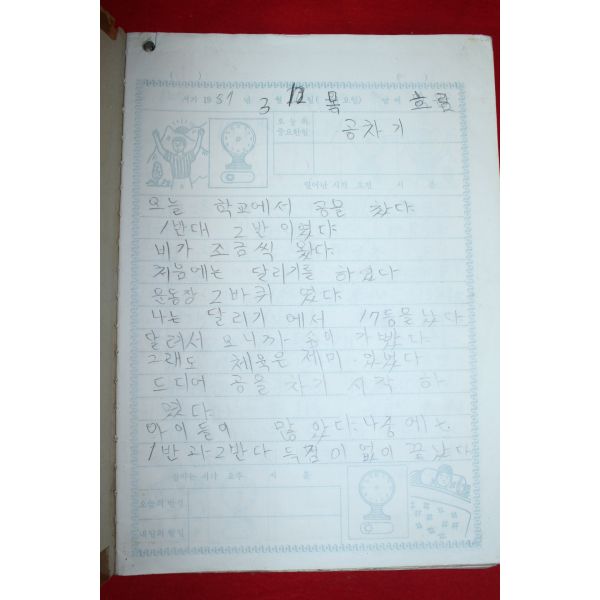 서기 19 87 년 3 월 12 일 ( 목 요일) 날씨 흐림
오늘의 중요한일 공차기
일어난 시각 오전 시 분
오늘 학교에서 공을 찼다.
1반대 2반 이였다.
비가 조금씩 왔다.
처음에는 달리기를 하였다
운동장 2바퀴 였다.
나는 달리기 에서 17등을 났다.
달려서 오니까 숨이 가빴다
그래도 체육은 재미 있었다
드디어 공을 차기 시작 하
였다.
아이들이 많 았다. 나중에는
1반과 2반다 득점이 없이 끝났다
잠자는 시각 오후 시 분
오늘의 반성
내일의 할일